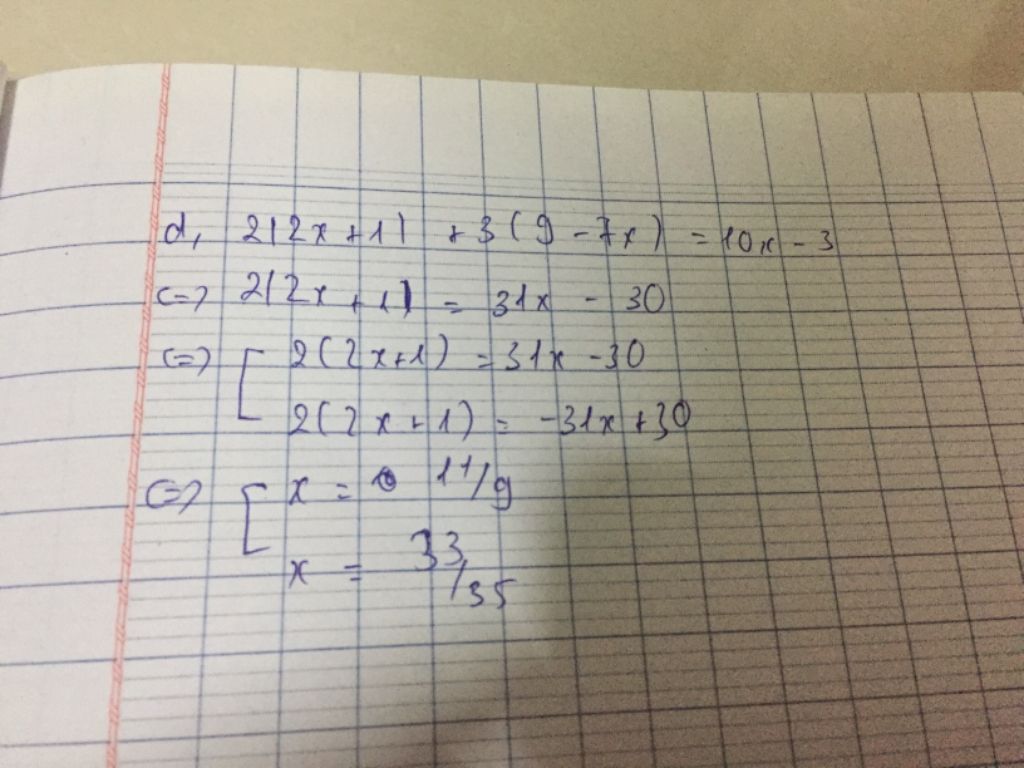 d, 2|2x+1| + 3(9-7x) = 10x-3
<=> 2|2x+1| = 31x - 30
<=> [ 2(2x+1) = 31x-30
2(2x+1) = -31x+30
<=> [ x = 11/9
x = 33/35